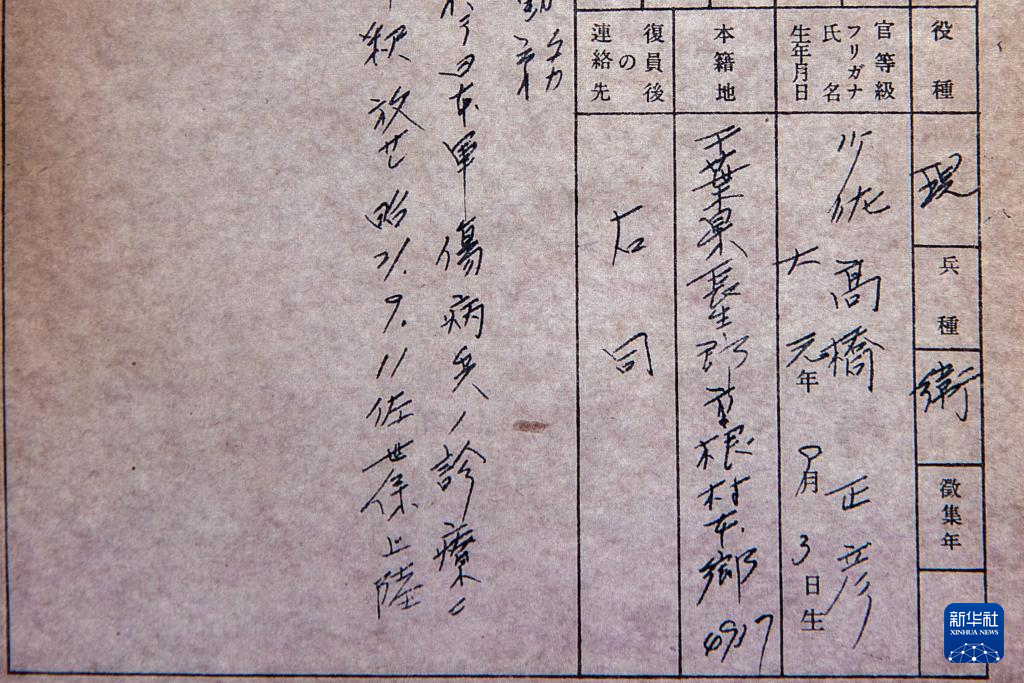 役種
現
兵種
衛
徵集年
官等級
フリガナ
氏名
少佐 髙橋 正彦
生年月日
大元年 月3日生
本籍地
千葉県長生郡 根村本郷
復員後
の
連絡先
右同
務
日本軍傷病兵ノ診療ニ
釈放セ 昭21.9.11佐世保上陸
新华社
XINHUA NEWS